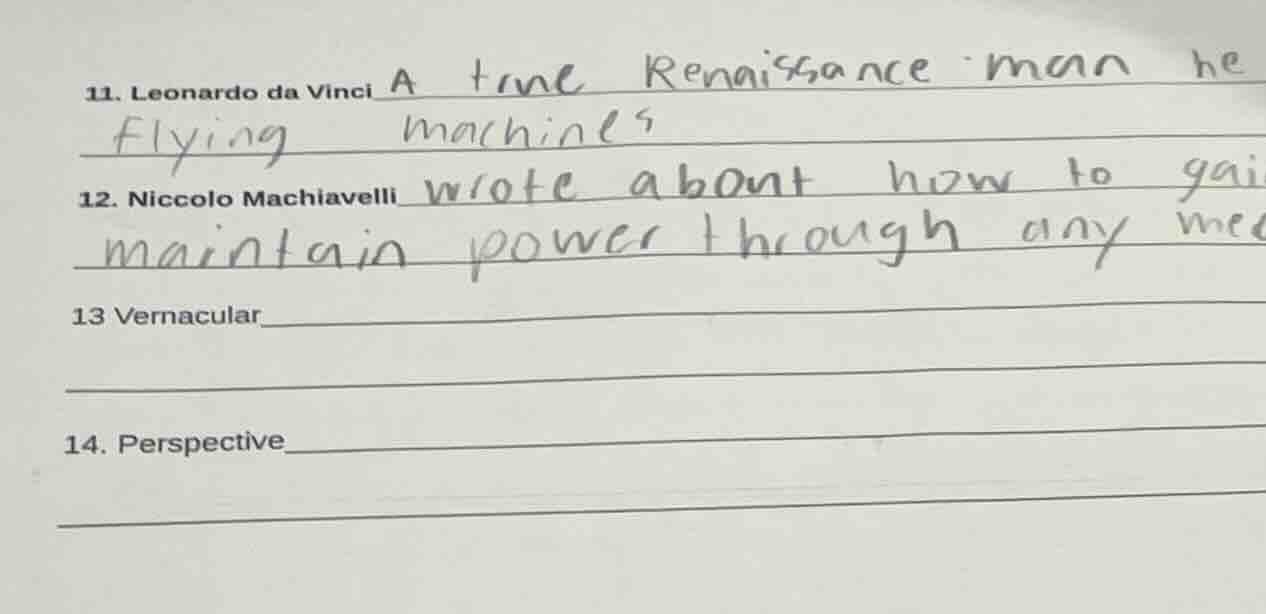 11. Leonardo da Vinci A true Renaissance man he
flying machines
12. Niccolo Machiavelli wrote about how to
maintain power through any
13 Vernacular
14. Perspective